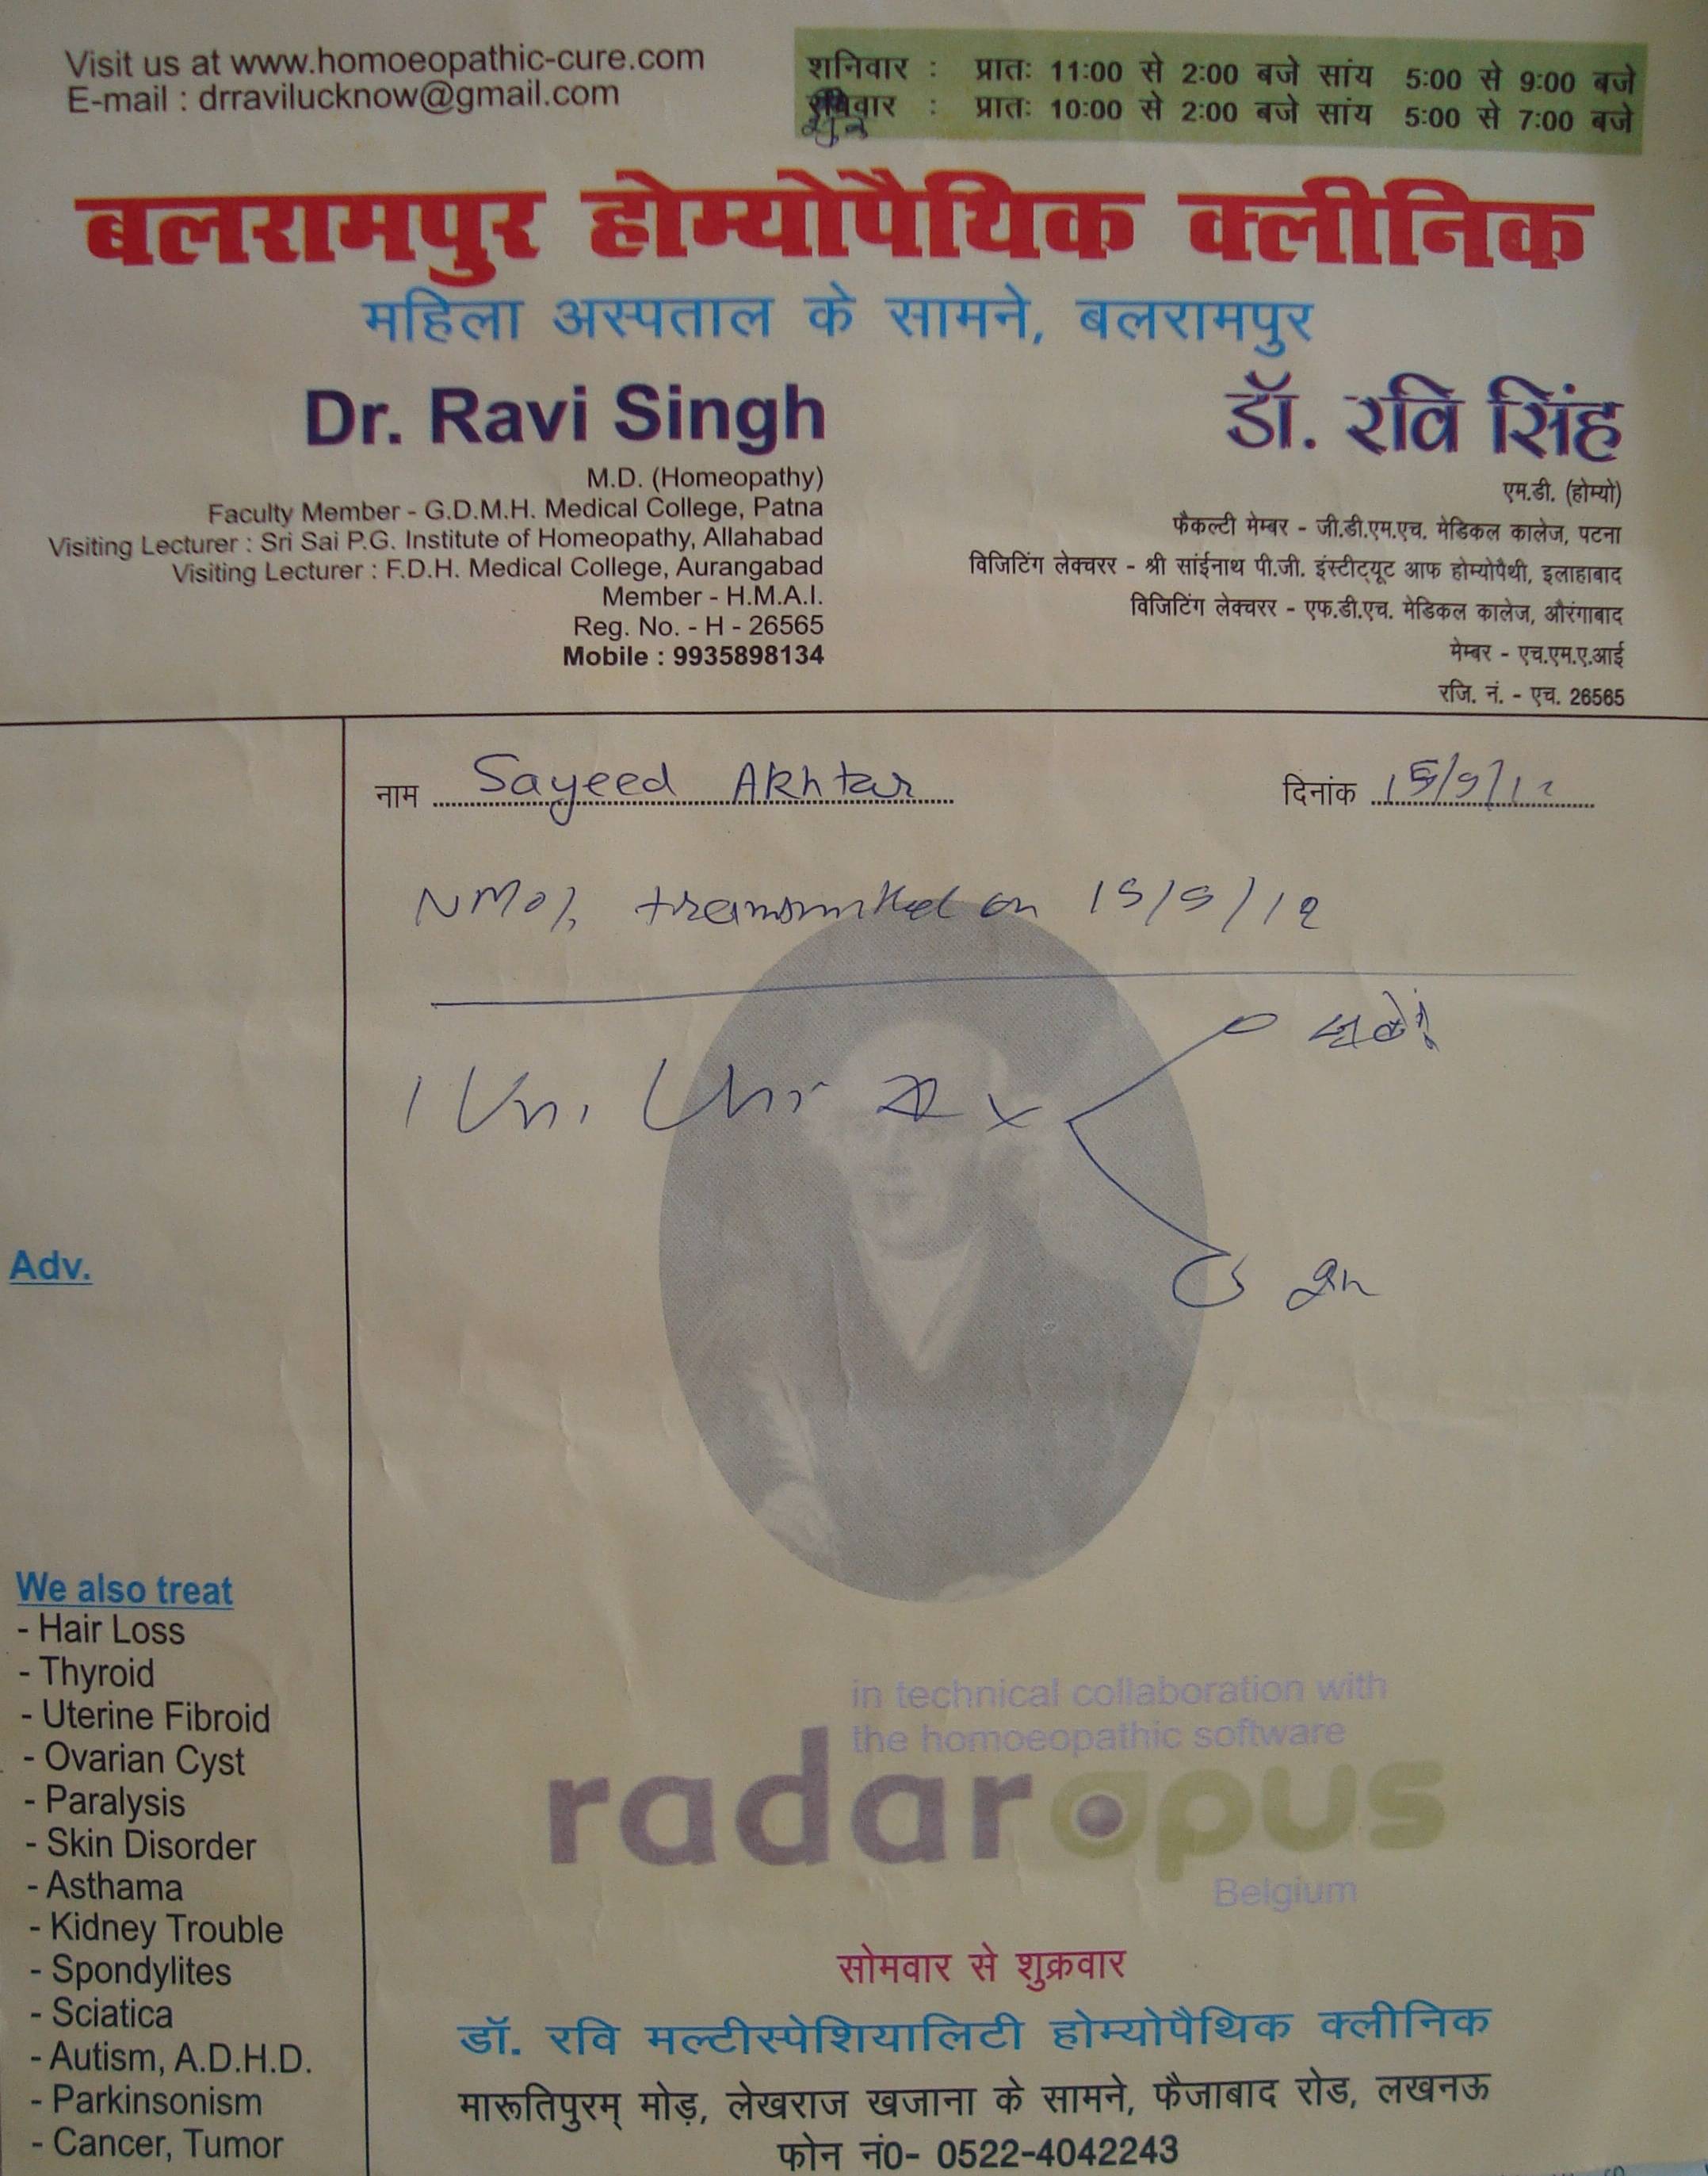 Visit us at www.homoeopathic-cure.com
E-mail : drravilucknow@gmail.com
शनिवार : प्रातः 11:00 से 2:00 बजे सांय 5:00 से 9:00 बजे
रविवार : प्रातः 10:00 से 2:00 बजे सांय 5:00 से 7:00 बजे
बलरामपुर होम्योपैथिक क्लीनिक
महिला अस्पताल के सामने, बलरामपुर
Dr. Ravi Singh
M.D. (Homeopathy)
Faculty Member - G.D.M.H. Medical College, Patna
Visiting Lecturer : Sri Sai P.G. Institute of Homeopathy, Allahabad
Visiting Lecturer : F.D.H. Medical College, Aurangabad
Member - H.M.A.I.
Reg. No. - H - 26565
Mobile : 9935898134
डॉ. रवि सिंह
एम.डी. (होम्यो)
फैकल्टी मेम्बर - जी.डी.एम.एच. मेडिकल कालेज, पटना
विजिटिंग लेक्चरर - श्री सांईनाथ पी.जी. इंस्टीट्यूट आफ होम्योपैथी, इलाहाबाद
विजिटिंग लेक्चरर - एफ.डी.एच. मेडिकल कालेज, औरंगाबाद
मेम्बर - एच.एम.ए.आई
रजि. नं. - एच. 26565
नाम Sayeed Akhtar
दिनांक 15/9/12
on 15/9/12
Adv.
We also treat
- Hair Loss
- Thyroid
- Uterine Fibroid
- Ovarian Cyst
- Paralysis
- Skin Disorder
- Asthama
- Kidney Trouble
- Spondylites
- Sciatica
- Autism, A.D.H.D.
- Parkinsonism
- Cancer, Tumor
in technical collaboration with
the homoeopathic software
radaropus
Belgium
सोमवार से शुक्रवार
डॉ. रवि मल्टीस्पेशियालिटी होम्योपैथिक क्लीनिक
मारूतिपुरम् मोड़, लेखराज खजाना के सामने, फैजाबाद रोड, लखनऊ
फोन नं0- 0522-4042243